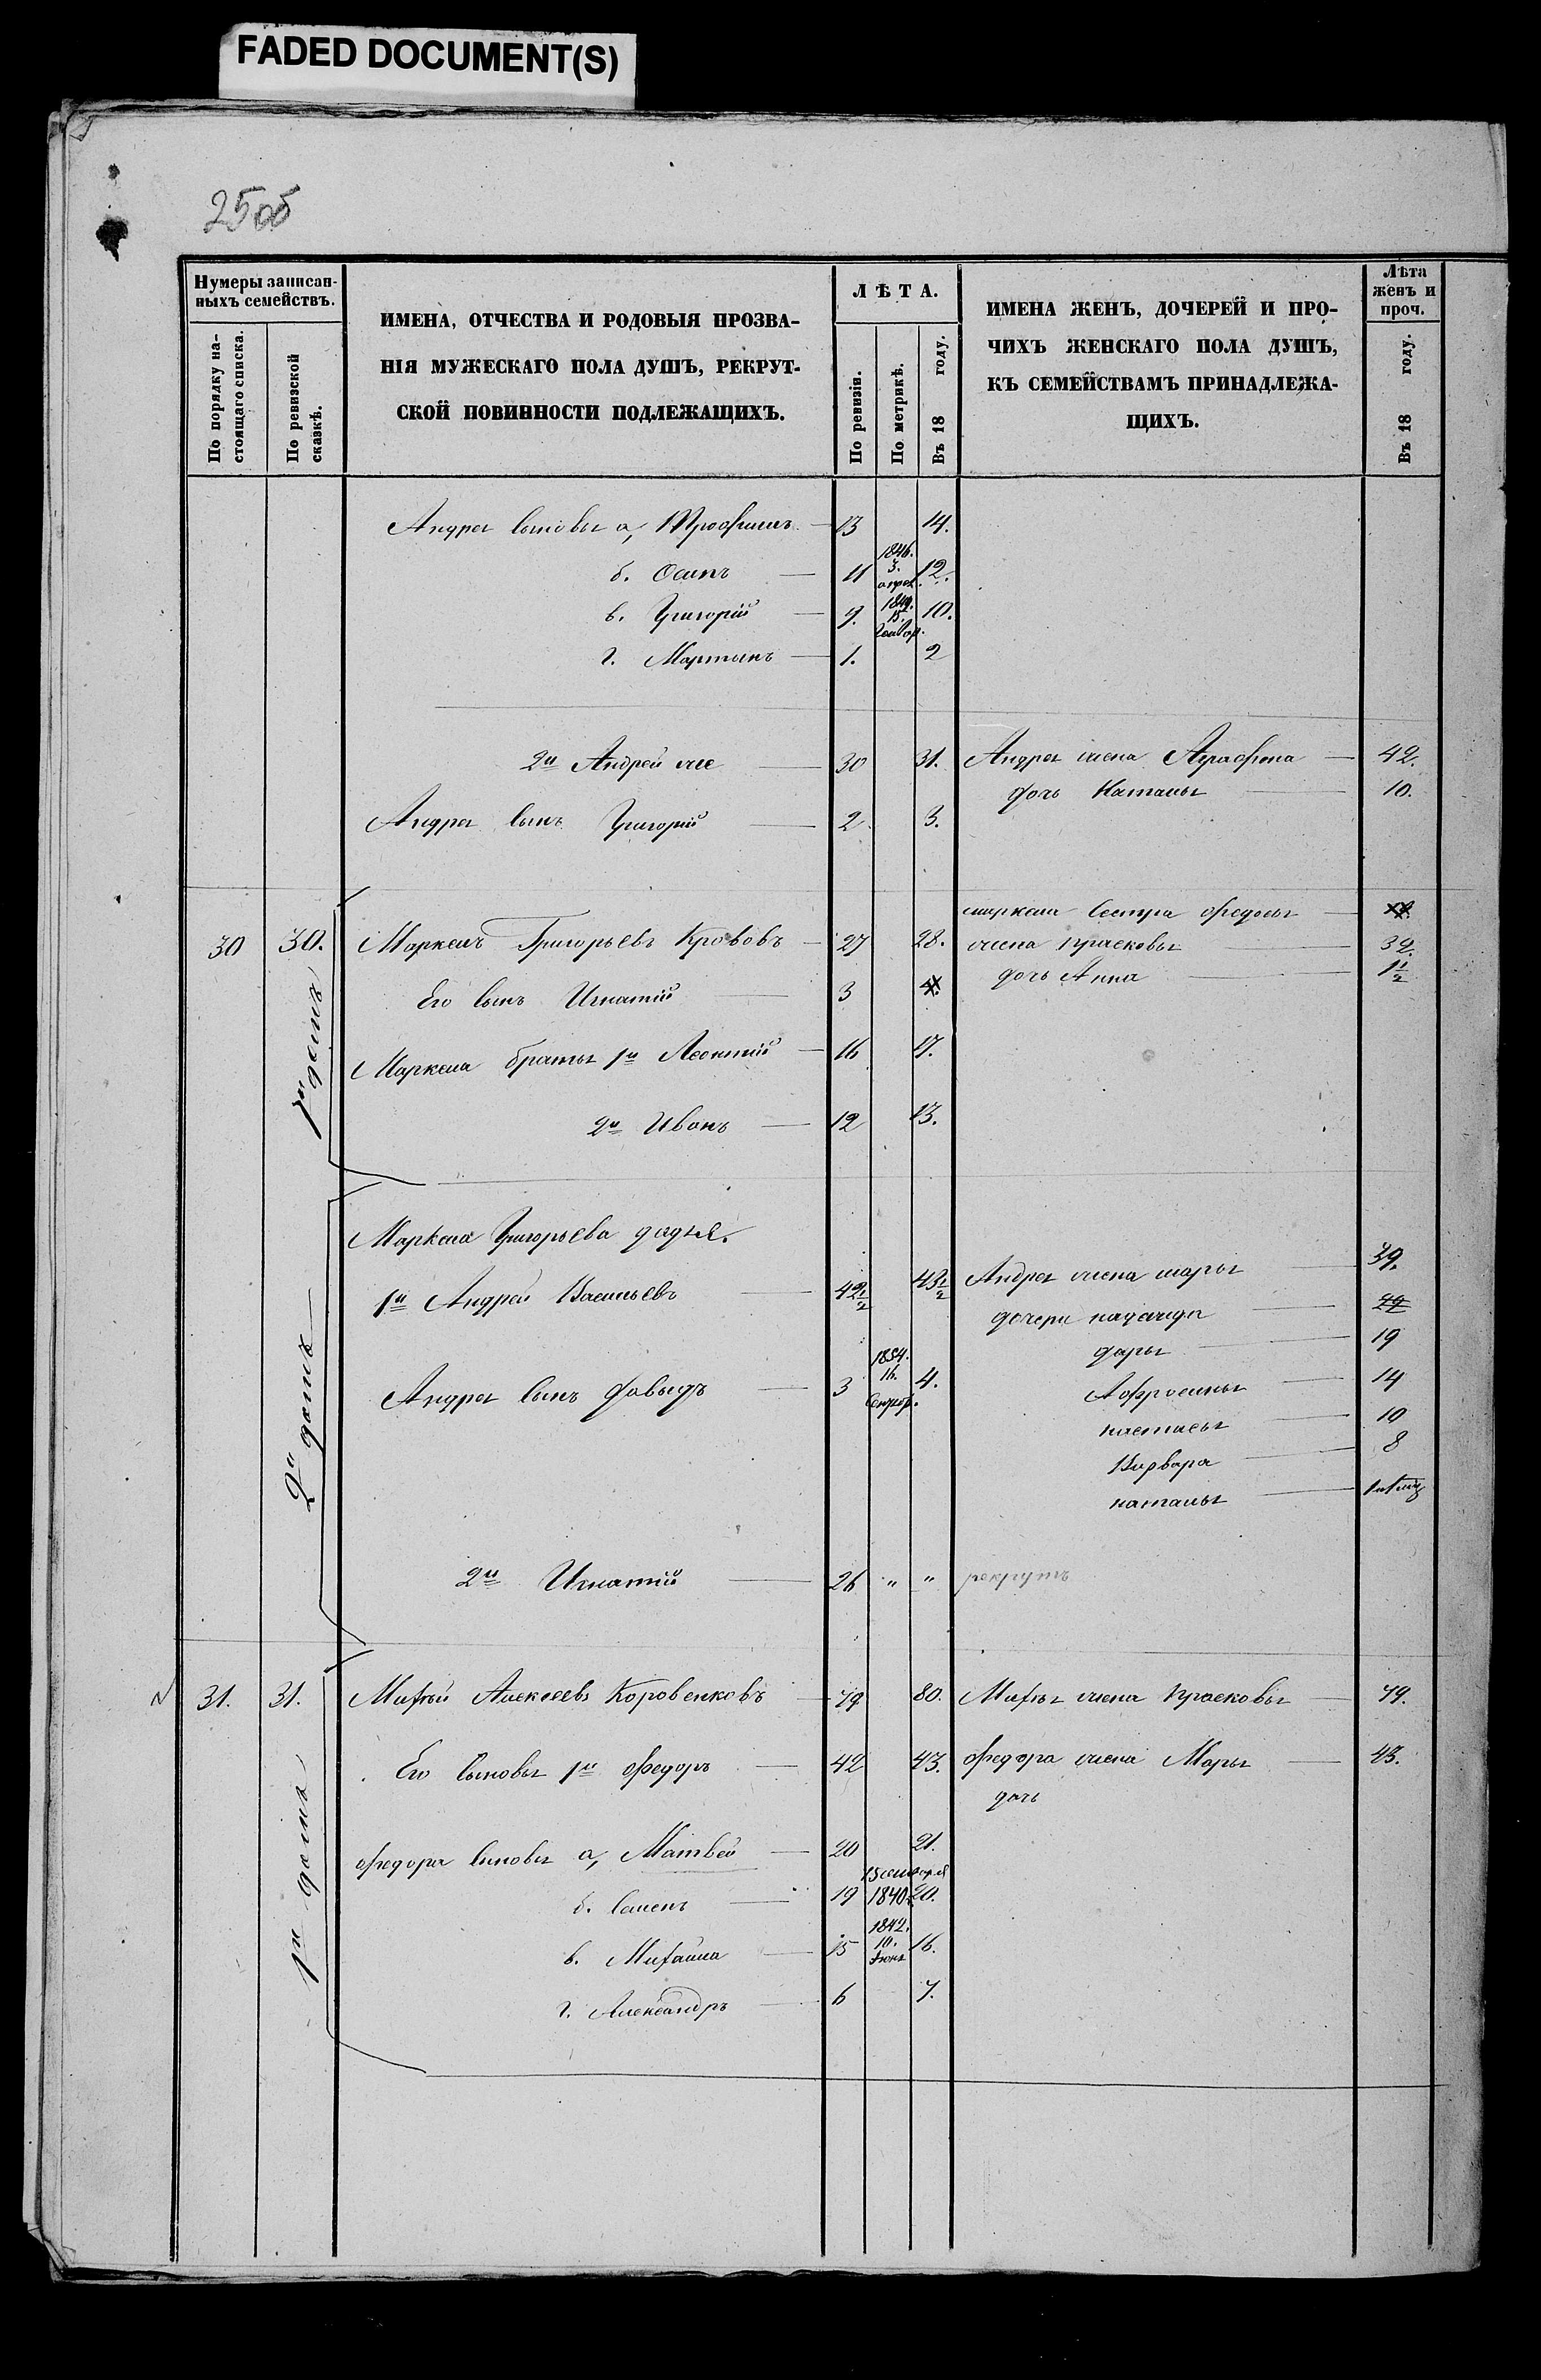 FADED DOCUMENT(S)
25об
Нумеры записан-
ныхъ семействъ.
По порядку на-
стоящаго списка.
По ревизской
сказкѣ.
ИМЕНА, ОТЧЕСТВА И РОДОВЫЯ ПРОЗВА-
НІЯ МУЖЕСКАГО ПОЛА ДУШЪ, РЕКРУТ-
СКОЙ ПОВИННОСТИ ПОДЛЕЖАЩИХЪ.
ЛѢТА.
По ревизіи.
По метрикѣ.
Въ 18 году.
ИМЕНА ЖЕНЪ, ДОЧЕРЕЙ И ПРО-
ЧИХЪ ЖЕНСКАГО ПОЛА ДУШЪ,
КЪ СЕМЕЙСТВАМЪ ПРИНАДЛЕЖА-
ЩИХЪ.
Лѣта
женъ и
проч.
Въ 18 году.
Андрея сыновья а, Трофимъ 13 14.
б. Осипъ 11 1846. 3. апрел. 12.
в. Григорій 9. 15. 10.
г. Мартынъ 1. 2
2й Андрей 30 31. Андрея жена Аграфена 42.
дочь Наталья 10.
Андрея сынъ Григорій 2 3.
сестра Федосья
30 30. Маркелъ Григорьевъ 27 28. жена Прасковья 32.
Его сынъ Игнатій 3 4. дочь Анна 1 1/2
1й домъ
Маркела братья 1й Леонтий 16 17.
2й Иванъ 12 13.
Маркела Григорьева дядья.
1й Андрей Васильевъ 42 1/2 43 1/2 Андрея жена Марья 39.
дочери
дарья 19
Андрея сынъ Давыдъ 3 1854. 16. 4.
Афросинья 14
настасья 10
Варвара 8
наталья
2й домъ
2й Игнатій 26 " " рекрутъ
31. 31. Михѣй Алексеевъ Коровенковъ 79 80. Михѣя жена Прасковья 79.
Его сыновья 1й Федоръ 42 43. Федора жена Марья 43.
дочь
1й домъ
Федора сыновья а, Матвей 20 21.
б. Семенъ 19 1840 20.
в. Михайла 15 1842. 10. Июня 16.
г. Александръ 6 7.